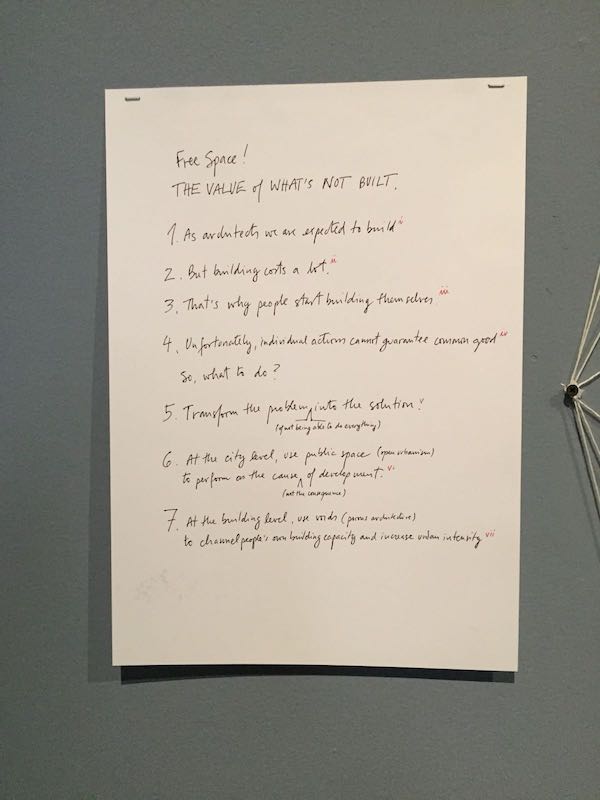 Free Space!
THE VALUE of WHAT'S NOT BUILT.
1. As architects we are expected to build i
2. But building costs a lot. ii
3. That's why people start building themselves. iii
4. Unfortunately, individual actions cannot guarantee common good iv
So, what to do?
5. Transform the problem into the solution. v
(of not being able to do everything)
6. At the city level, use public space (open urbanism)
to perform as the cause of development. vi
(not the consequence)
7. At the building level, use voids (porous architecture)
to channel people's own building capacity and increase urban intensity vii